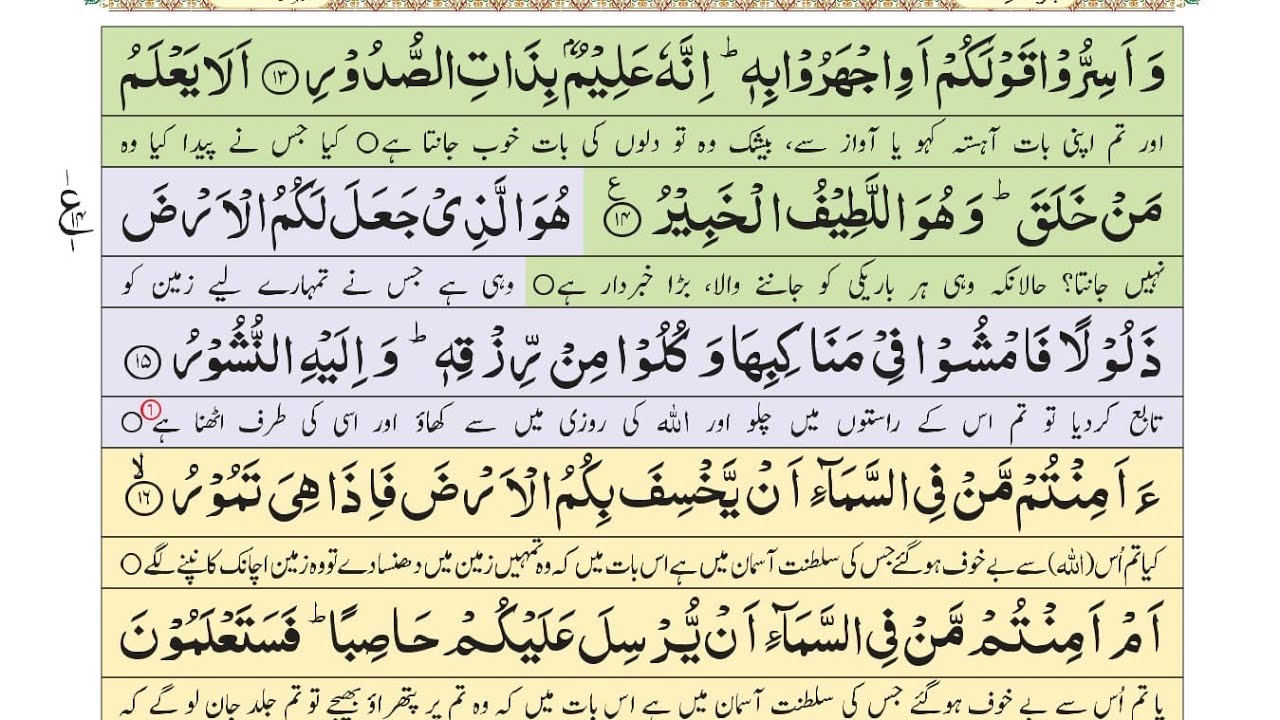 وَ اَسِرُّوْا قَوْلَكُمْ اَوِ اجْهَرُوْا بِهٖ ؕ اِنَّهٗ عَلِيْمٌۢ بِذَاتِ الصُّدُوْرِ ۝۱۳ اَلَا يَعْلَمُ
اور تم اپنی بات آہستہ کہو یا آواز سے، بیشک وہ تو دلوں کی بات خوب جانتا ہے○ کیا جس نے پیدا کیا وہ
مَنْ خَلَقَ ؕ وَ هُوَ اللَّطِيْفُ الْخَبِيْرُ ۝۱۴ ع هُوَ الَّذِيْ جَعَلَ لَكُمُ الْاَرْضَ
ع ۱۴
نہیں جانتا؟ حالانکہ وہی ہر باریکی کو جاننے والا، بڑا خبردار ہے○ وہی ہے جس نے تمہارے لیے زمین کو
ذَلُوْلًا فَامْشُوْا فِيْ مَنَاكِبِهَا وَ كُلُوْا مِنْ رِّزْقِهٖ ؕ وَ اِلَيْهِ النُّشُوْرُ ۝۱۵
تابع کردیا تو تم اس کے راستوں میں چلو اور اللہ کی روزی میں سے کھاؤ اور اسی کی طرف اٹھنا ہے○
ءَ اَمِنْتُمْ مَّنْ فِي السَّمَآءِ اَنْ يَّخْسِفَ بِكُمُ الْاَرْضَ فَاِذَا هِيَ تَمُوْرُ ۝۱۶ ۙ
کیا تم اُس (اللہ) سے بے خوف ہوگئے جس کی سلطنت آسمان میں ہے اس بات میں کہ وہ تمہیں زمین میں دھنسا دے تو وہ زمین اچانک کانپنے لگے○
اَمْ اَمِنْتُمْ مَّنْ فِي السَّمَآءِ اَنْ يُّرْسِلَ عَلَيْكُمْ حَاصِبًا ؕ فَسَتَعْلَمُوْنَ
یا تم اُس سے بے خوف ہوگئے جس کی سلطنت آسمان میں ہے اس بات میں کہ وہ تم پر پتھراؤ بھیجے تو تم جلد جان لو گے کہ